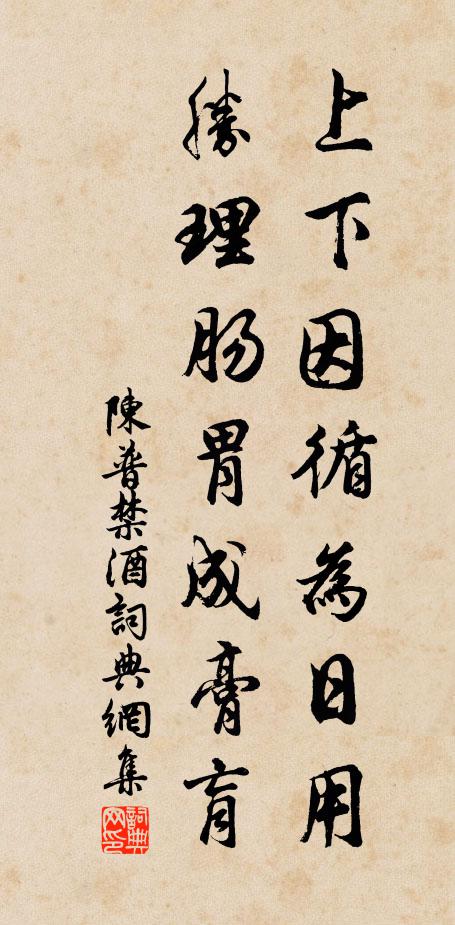 上下因循為日用
勝理肠胃成膏肓
陳普禁酒詞典網集
詞典网印